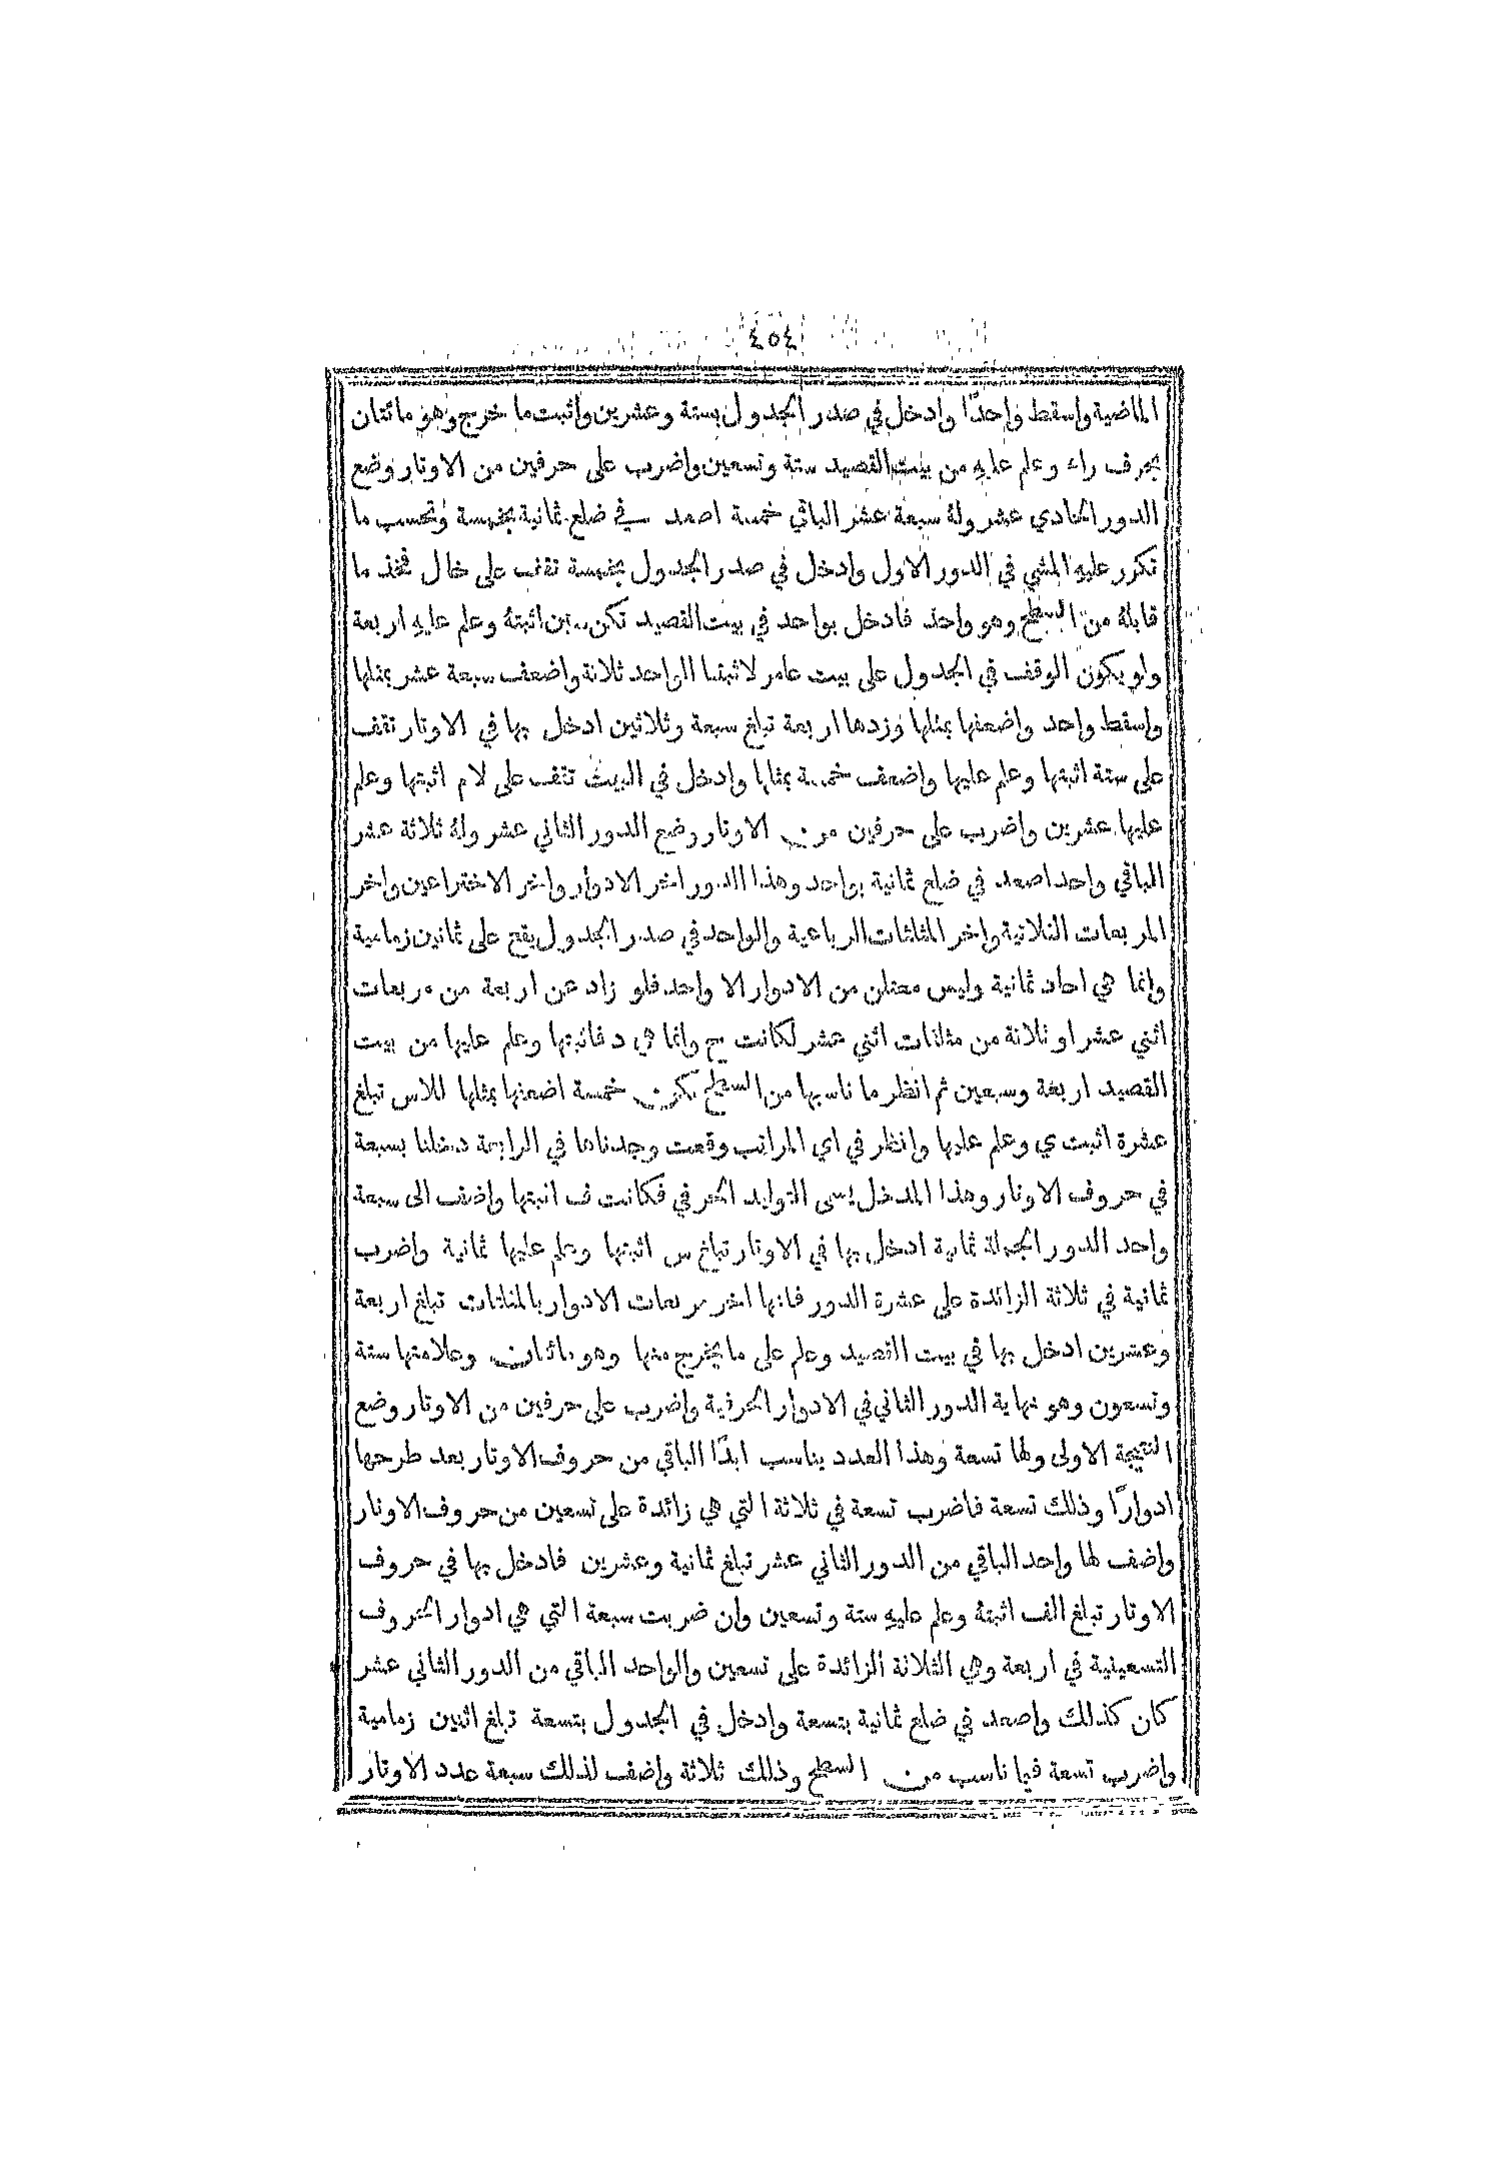 ٤٥٤
الماضية واسقط واحدًا وادخل في صدر الجدول بستة وعشرين واثبت ما خرج وهو مائتان
بحرف راء وعلم عليهِ من بيت القصيد ستة وتسعين واضرب على حرفين من الاوتار وضع
الدور الحادي عشر ولهُ سبعة عشر الباقي خمسة اصعد في ضلع ثمانية بخمسة وتحسب ما
تكرر عليهِ المشي في الدور الاول وادخل في صدر الجدول بخمسة تقف على خال فخذ ما
قابلهُ من السطح وهو واحد فادخل بواحد في بيت القصيد تكن سين اثبتهُ وعلم عليهِ اربعة
ولو يكون الوقف في الجدول على بيت عامر لاثبتنا الواحد ثلاثة واضعف سبعة عشر بمثلها
واسقط واحد واضعفها بمثلها وزدها اربعة تبلغ سبعة وثلاثين ادخل بها في الاوتار تقف
على ستة اثبتها وعلم عليها واضعف خمسة بمثلها وادخل في البيت تقف على لام اثبتها وعلم
عليها عشرين واضرب على حرفين من الاوتار وضع الدور الثاني عشر ولهُ ثلاثة عشر
الباقي واحد اصعد في ضلع ثمانية بواحد وهذا الدور اخر الادوار واخر الاختراعين واخر
المربعات الثلاثية واخر المثلثات الرباعية والواحد في صدر الجدول يقع على ثمانين زمامية
وانما هي احاد ثمانية وليس معنا من الادوار الا واحد فلو زاد عن اربعة من مربعات
اثني عشر او ثلاثة من مثلثات اثني عشر لكانت ح وانما هي د فاثبتها وعلم عليها من بيت
القصيد اربعة وسبعين ثم انظر ما ناسبها من السطح تكن خمسة اضعفها بمثلها للاس تبلغ
عشرة اثبت ي وعلم عليها وانظر في اي المراتب وقعت وجدناها في الرابعة دخلنا بسبعة
في حروف الاوتار وهذا المدخل يسمى التوليد الحرفي فكانت ف اثبتها واضف الى سبعة
واحد الدور الجملة ثمانية ادخل بها في الاوتار تبلغ س اثبتها وعلم عليها ثمانية واضرب
ثمانية في ثلاثة الزائدة على عشرة الدور فانها اخر مربعات الادوار بالمثلثات تبلغ اربعة
وعشرين ادخل بها في بيت القصيد وعلم على ما يخرج منها وهو مائتان وعلامتها ستة
وتسعون وهو نهاية الدور الثاني في الادوار الحرفية واضرب على حرفين من الاوتار وضع
النتيجة الاولى ولها تسعة وهذا العدد يناسب ابدًا الباقي من حروف الاوتار بعد طرحها
ادوارًا وذلك تسعة فاضرب تسعة في ثلاثة التي هي زائدة على تسعين من حروف الاوتار
واضف لها واحد الباقي من الدور الثاني عشر تبلغ ثمانية وعشرين فادخل بها في حروف
الاوتار تبلغ الف اثبتهُ وعلم عليهِ ستة وتسعين وان ضربت سبعة التي هي ادوار الحروف
التسعينية في اربعة وهي الثلاثة الزائدة على تسعين والواحد الباقي من الدور الثاني عشر
كان كذلك واصعد في ضلع ثمانية بتسعة وادخل في الجدول بتسعة تبلغ اثنين زمامية
واضرب تسعة فيا ناسب من السطح وذلك ثلاثة واضف لذلك سبعة عدد الاوتار